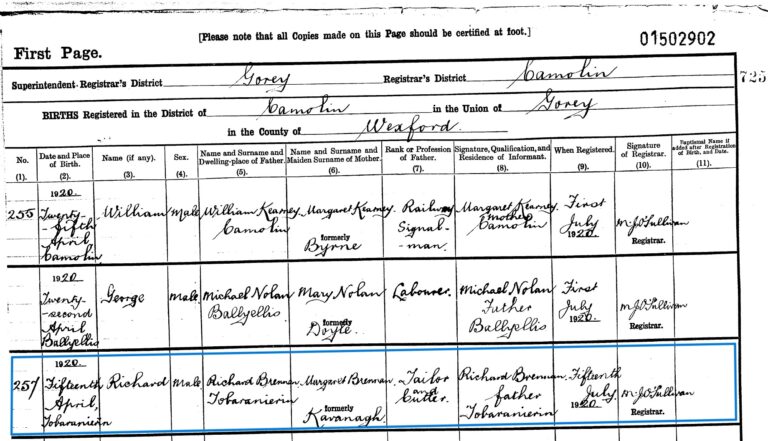 [Please note that all Copies made on this Page should be certified at foot.]
01502902
First Page.
Superintendent Registrar's District Gorey Registrar's District Camolin
725
BIRTHS Registered in the District of Camolin in the Union of Gorey
in the County of Wexford.
No. (1).
Date and Place of Birth. (2).
Name (if any). (3).
Sex. (4).
Name and Surname and Dwelling-place of Father. (5).
Name and Surname and Maiden Surname of Mother. (6).
Rank or Profession of Father. (7).
Signature, Qualification, and Residence of Informant. (8).
When Registered. (9).
Signature of Registrar. (10).
Baptismal Name if added after Registration of Birth, and Date. (11).
255
1920
Twenty-
fifth
April
Camolin
William
Male
William Kearney
Camolin
Margaret Kearney
formerly
Byrne
Railway
Signal-
-man.
Margaret Kearney
mother
Camolin
First
July
1920.
M.J. O'Sullivan
Registrar.
1920
Twenty-
second
April
Ballyellis
George
Male
Michael Nolan
Ballyellis
Mary Nolan
formerly
Doyle
Labourer.
Michael Nolan
Father
Ballyellis
First
July
1920.
M.J. O'Sullivan
Registrar.
257
1920
Fifteenth
April,
Tobaranierin
Richard
Male
Richard Brennan
Tobaranierin
Margaret Brennan
formerly
Kavanagh
Tailor
and
Cutter.
Richard Brennan
father
Tobaranierin
Fifteenth
July
1920.
M.J. O'Sullivan
Registrar.